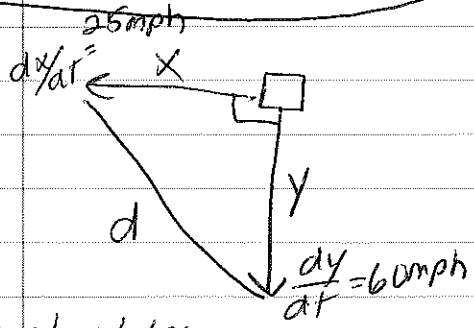 25mph
dx/dt=
x
y
d
dy/dt=60mph